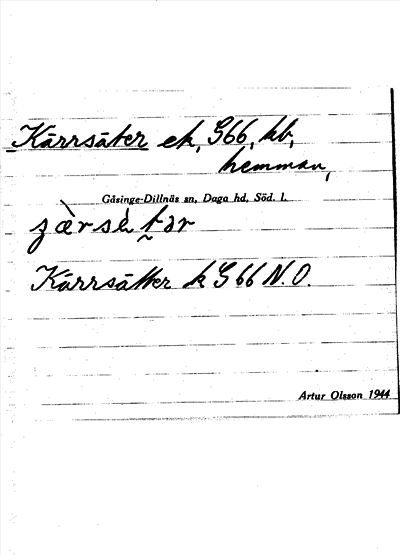 Kärrsäter ek, G66, kb,
hemman,
Gåsinge-Dillnäs sn, Daga hd, Söd. l.
Kärrsätter k G66 N.O.
Artur Olsson 1944